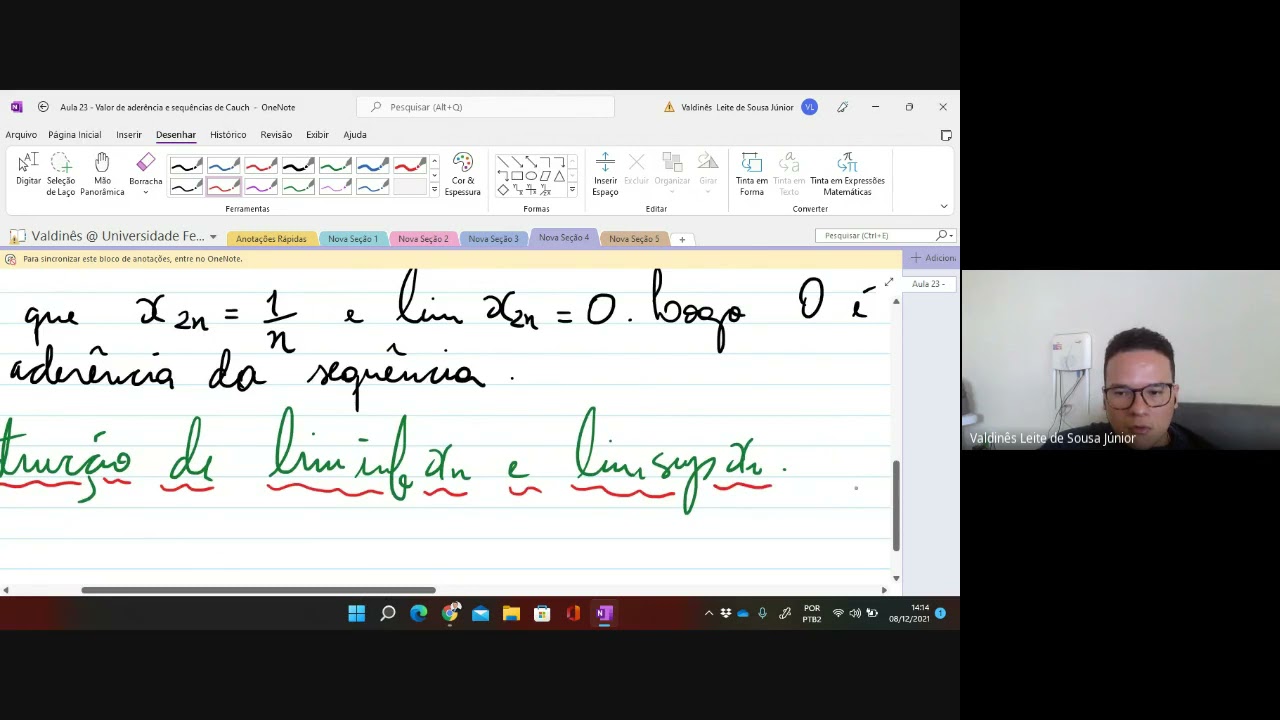 Aula 23 - Valor de aderência e sequências de Cauch - OneNote
Pesquisar (Alt+Q)
Valdinês Leite de Sousa Júnior
VL
Arquivo Página Inicial Inserir Desenhar Histórico Revisão Exibir Ajuda
Digitar Seleção de Laço Mão Panorâmica Borracha Cor & Espessura Inserir Espaço Excluir Organizar Girar Tinta em Forma Tinta em Texto Tinta em Expressões Matemáticas
Ferramentas Formas Editar Converter
Valdinês @ Universidade Fe... Anotações Rápidas Nova Seção 1 Nova Seção 2 Nova Seção 3 Nova Seção 4 Nova Seção 5 Pesquisar (Ctrl+E)
Para sincronizar este bloco de anotações, entre no OneNote.
Adiciona
Aula 23 -
que x_{2n} = 1/n e lim x_{2n} = 0. Logo 0 é
aderência da sequência.
trução de lim inf x_n e lim sup x_n.
Valdinês Leite de Sousa Júnior
POR PTB2
14:14
08/12/2021
1